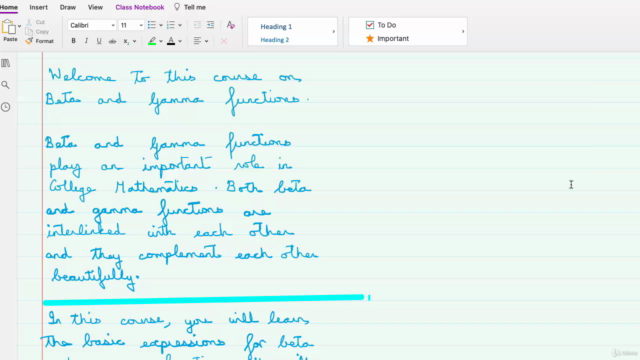 Home Insert Draw View Class Notebook Tell me
Paste Cut Copy Format Calibri 11 Heading 1 Heading 2 To Do Important
Welcome To this course on
Beta and Gamma functions.
Beta and Gamma functions
play an important role in
College Mathematics. Both beta
and gamma functions are
interlinked with each other
and they complement each other
beautifully.
In this course, you will learn
the basic expressions for beta